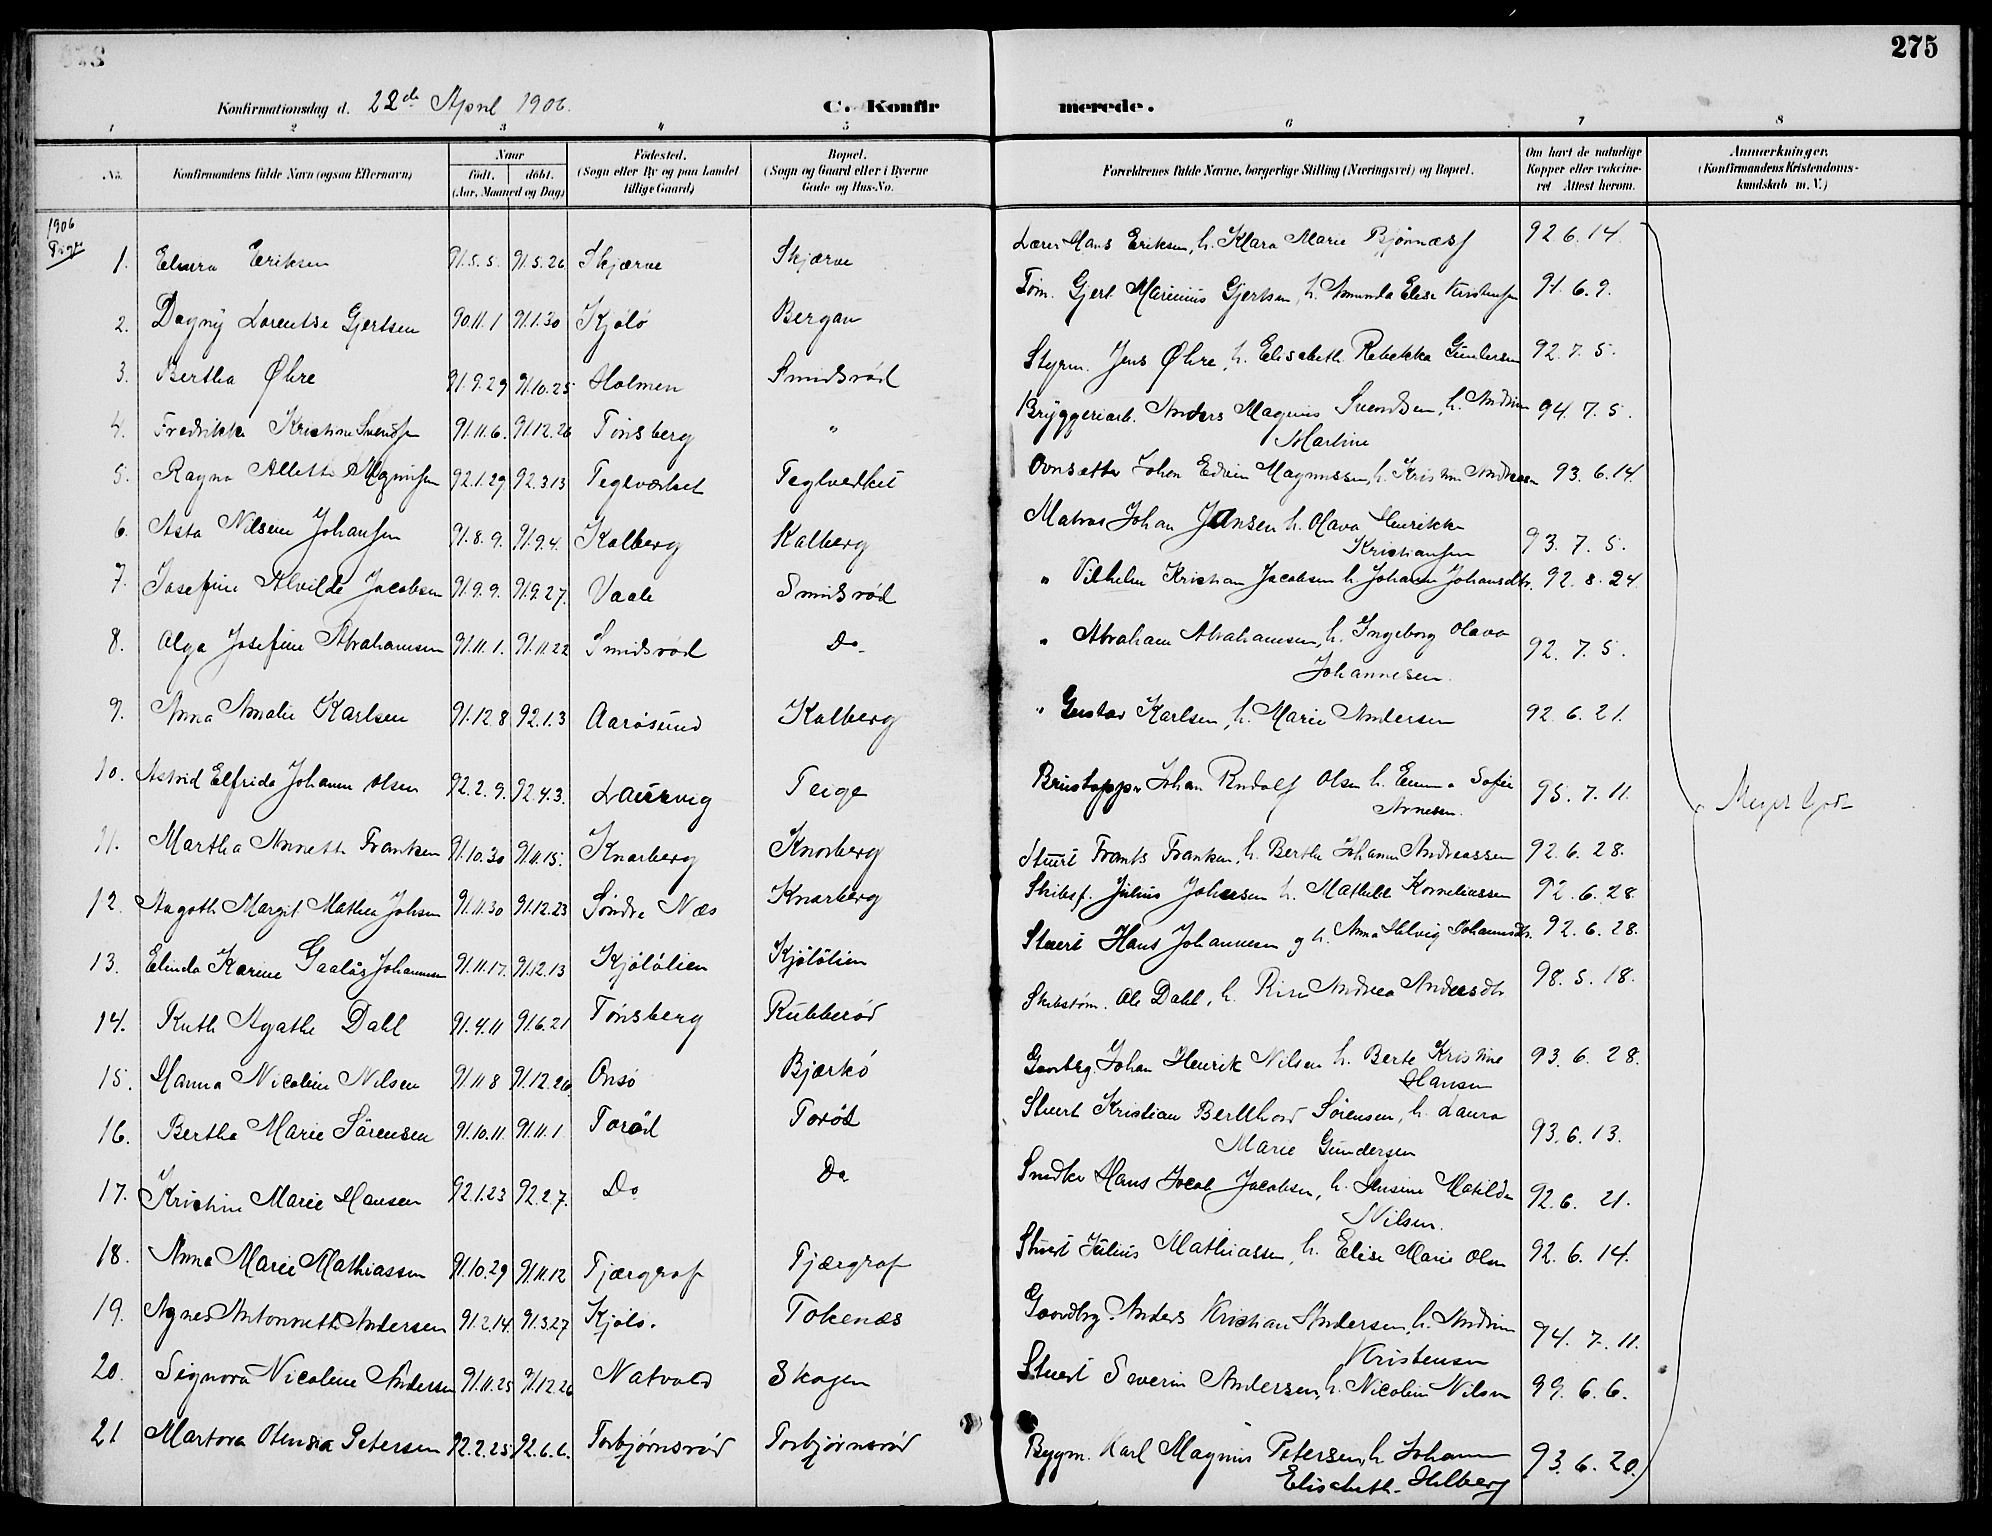 275
Konfirmationsdag d. 22de April 1906.
C. Konfirmerede.
1 2 3 4 5 6 7 8
No. Konfirmandens fulde Navn (ogsaa Efternavn) Naar født. døbt. (Aar, Maaned og Dag) Fødested. (Sogn eller By og paa Landet tillige Gaard) Bopæl. (Sogn og Gaard eller i Byerne Gade og Hus-No. Forældrenes fulde Navne, borgerlige Stilling (Næringsvei) og Bopæl. Om havt de naturlige Kopper eller vakcineret Attest herom. Anmærkninger, (Konfirmandens Kristendomskundskab m. V.)
1906
Piger
1. Elvira Eriksen 91.5.5. 91.5.26 Skjærve Skjærve Lærer Hans Eriksen, h. Klara Marie Bjönnæs 92.6.14.
2. Dagny Lorentse Gjertsen 90.11.1 91.1.30 Kjölö Bergan Töm. Gjert Marinius Gjertsen, h. Amunda Elise Kristensen 91.6.9.
3. Bertha Øhre 91.9.29 91.10.25 Holmen Smidsröd Styrm. Jens Øhre, h. Elisabeth Rebekka Gundersen 92.7.5.
4. Fredrikke Kristine Svendsen 91.11.6. 91.12.26 Tönsberg " Bryggeriarb. Anders Magnus Svendsen, h. Andrine Martine 94.7.5.
5. Ragna Alette Magnussen 92.1.29 92.3.13 Teglværket Teglverket Ovnsætter Johan Edvin Magnussen, h. Kristine Andreasen 93.6.14.
6. Asta Nilsine Johansen 91.8.9. 91.9.4. Kalberg Kalberg Matros Johan Jansen h. Olava Henrikke Kristiansen 93.7.5.
7. Josefine Alvilde Jacobsen 91.9.9. 91.9.27. Vaale Smidsröd " Vilhelm Kristian Jacobsen h. Johanne Johansdtr. 92.8.24.
8. Olga Josefine Abrahamsen 91.11.1. 91.11.22 Smidsröd Do. " Abraham Abrahamsen, h. Ingeborg Olava Johannesen. 92.7.5.
9. Anna Amalie Karlsen 91.12.8 92.1.3 Aarösund Kalberg " Gustav Karlsen, h. Marie Andersen 92.6.21.
10. Astrid Elfrida Johanne Olsen 92.2.9. 92.4.3. Laurvig Teige Brustapper Johan Rudolf Olsen h. Emma Sofie Arnesen. 95.7.11.
11. Martha Annette Frantsen 91.10.30 91.11.15. Knarberg Knarberg Stuert Frants Frantsen, h. Berthe Johanne Andreassen 92.6.28.
12. Aagoth Margit Mathea Johsen 91.11.30 91.12.23 Söndre Næs Knarberg Skibsf. Julius Johnsen h. Mathilde Korneliussen 92.6.28.
13. Elinda Karine Gaalös Johannesen 91.11.17. 91.12.13 Kjölölien Kjölölien Stuert Hans Johannesen og h. Anna Helvig Johannesdtr. 92.6.28.
14. Ruth Agathe Dahl 91.4.11 91.6.21 Tönsberg Rubberöd Skibstöm. Ole Dahl, h. Andrea Andersdtr 98.5.18.
15. Hanna Nicoline Nilsen 91.11.8 91.12.26 Onsö Bjerkö Gaardbrg. Johan Henrik Nilsen h. Berte Kristine Hansen 93.6.28.
16. Berthe Marie Sörensen 91.10.11. 91.11.1 Toröd Toröd Stuert Kristian Berthhard Sörensen, h. Laura Marie Gundersen 93.6.13.
17. Kristine Marie Hansen 92.1.23 92.2.7. Do Do Snedker Hans Jacob Jacobsen, h. Hensine Matilde Nilsen. 92.6.21.
18. Anna Marie Mathiassen 91.10.29 91.11.12 Tjærgraf Tjærgraf Stuert Julius Mathiassen, h. Elise Marie Olsen 92.6.14.
19. Agnes Antonette Andersen 91.2.14. 91.3.27 Kjölö. Tokenæs Gaardbrg. Anders Kristian Andersen, h. Andrine Kristensen 94.7.11.
20. Signora Nicoline Andersen 91.11.25 91.12.26 Natvold Skogen Stuert Severin Andersen, h. Nicoline Nilsen 99.6.6.
21 Martora Otensia Petersen 92.2.25 92.6.6. Torbjörnsröd Torbjörnsröd Bygm. Karl Magnus Petersen, h. Johanne Elisabeth Hilberg 93.6.20.
Meget Godt